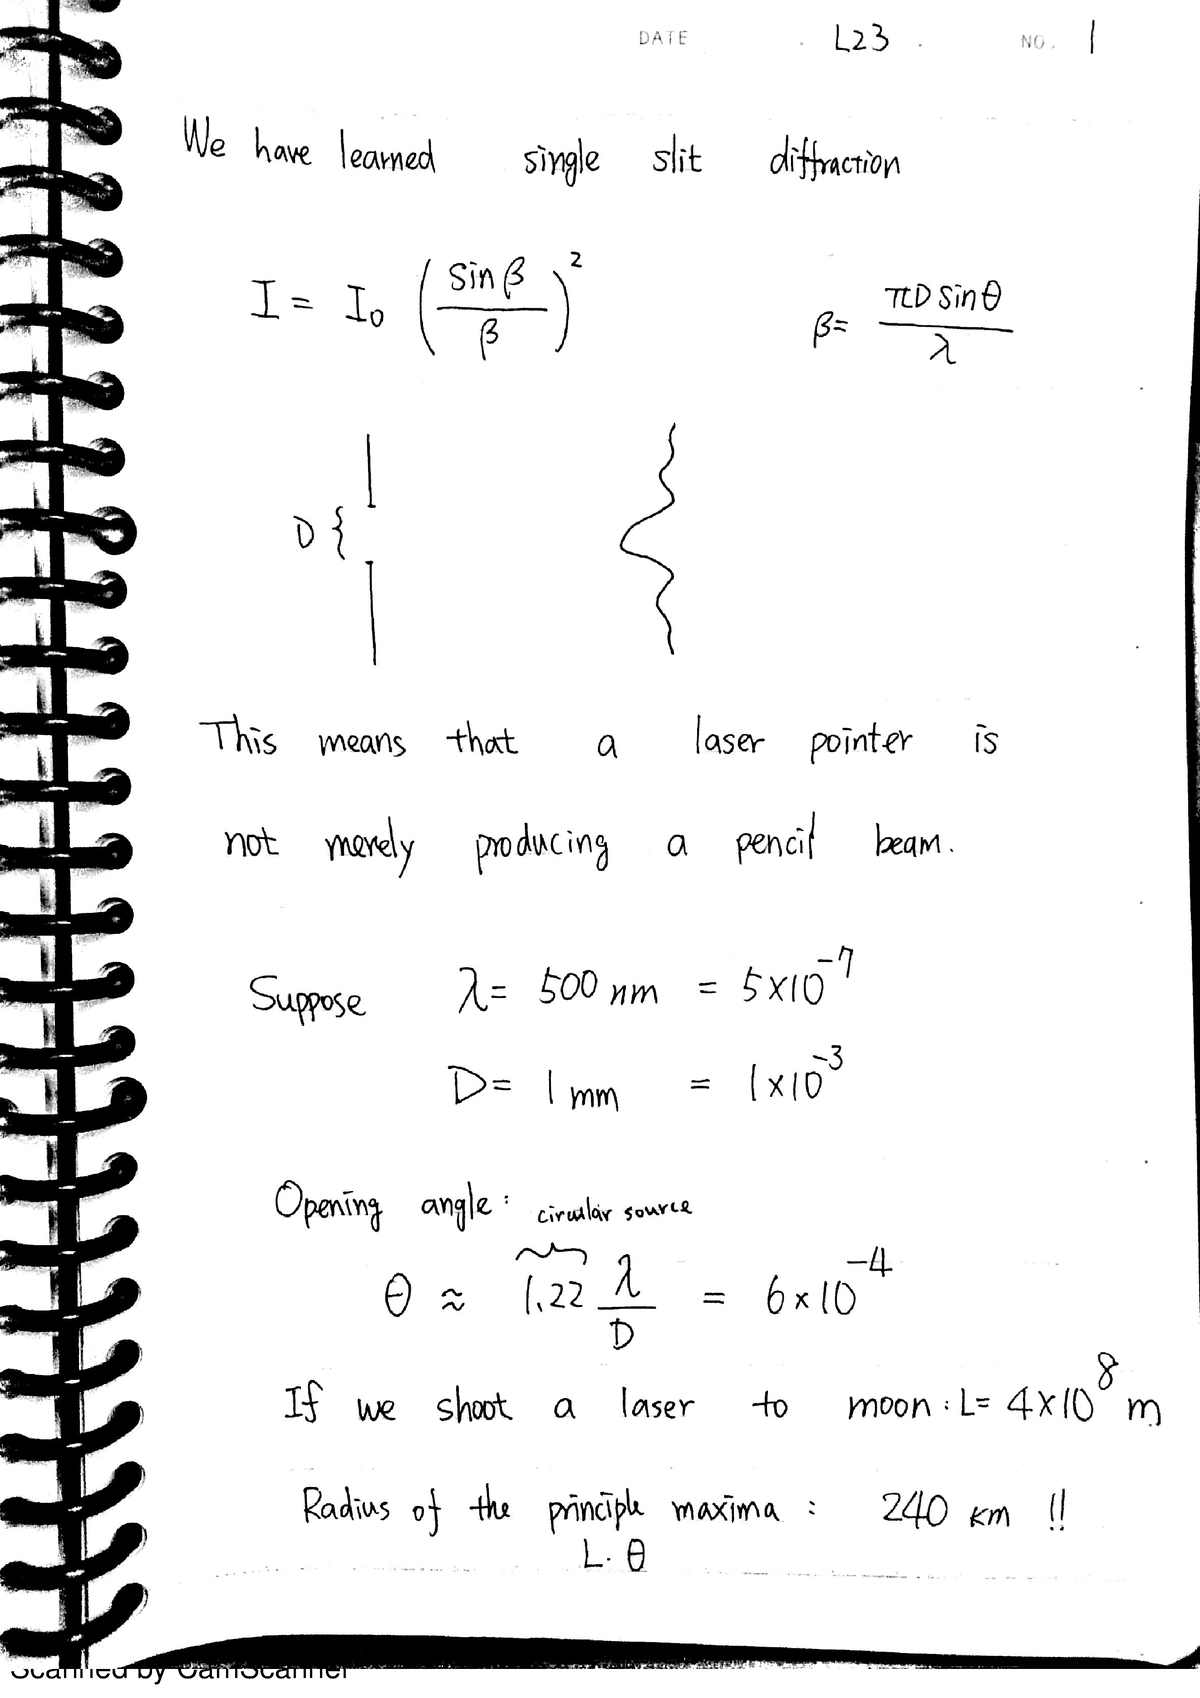 DATE . L23 . NO. 1
We have learned single slit diffraction
I = I₀ (sin β / β)² β = πD sin θ / λ
D {
This means that a laser pointer is
not merely producing a pencil beam.
Suppose λ = 500 nm = 5×10⁻⁷
D = 1 mm = 1×10⁻³
Opening angle: circular source
θ ≈ 1.22 λ / D = 6×10⁻⁴
If we shoot a laser to moon: L = 4×10⁸ m
Radius of the principle maxima : 240 km !!
L·θ
Scanned by CamScanner